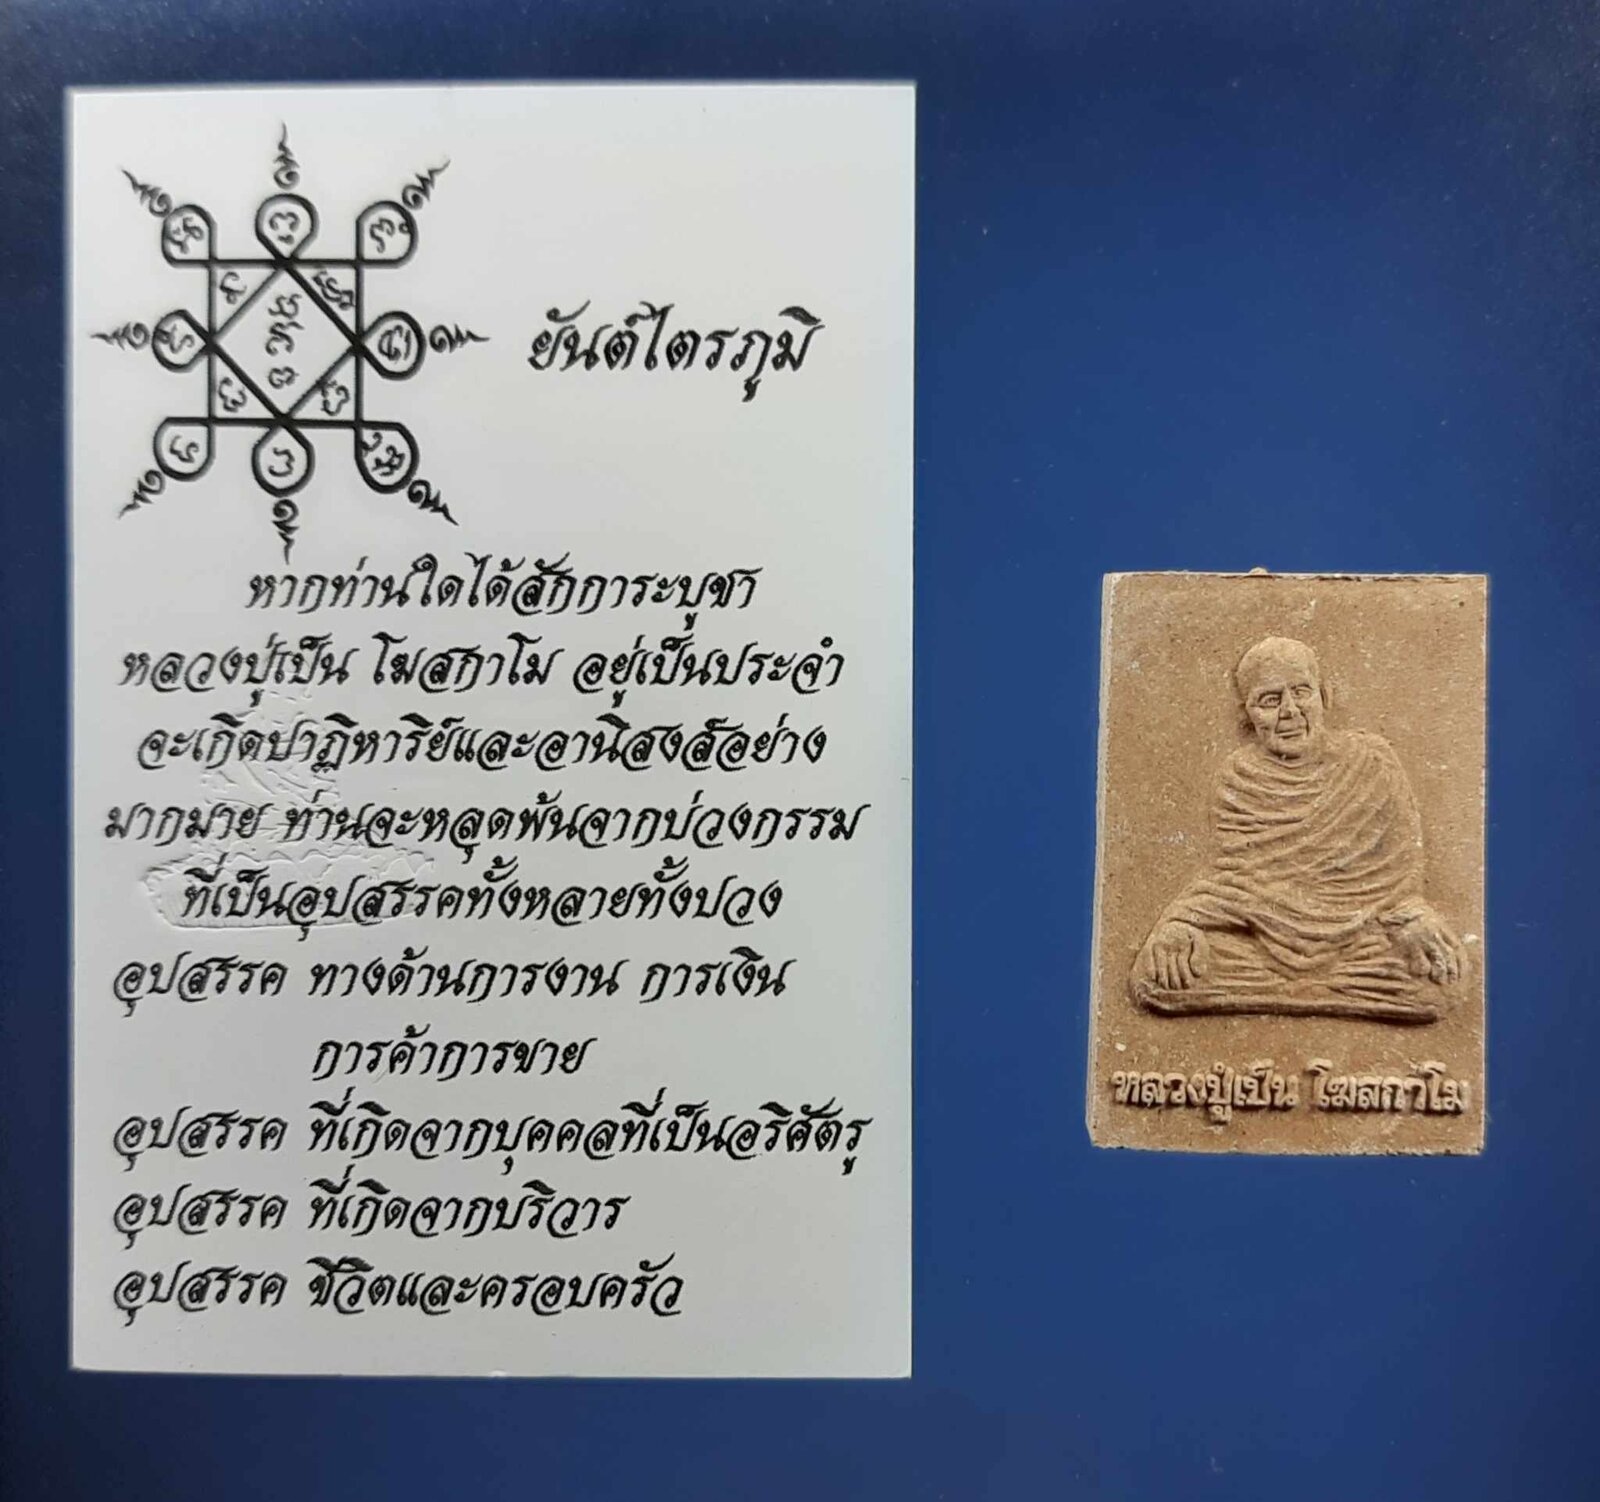 ยันต์ไตรภูมิ
หากท่านใดได้สักการะบูชา
หลวงปู่เป็น โฆสกาโม อยู่เป็นประจำ
จะเกิดปาฏิหาริย์และอานิสงส์อย่าง
มากมาย ท่านจะหลุดพ้นจากบ่วงกรรม
ที่เป็นอุปสรรคทั้งหลายทั้งปวง
อุปสรรค ทางด้านการงาน การเงิน
การค้าการขาย
อุปสรรค ที่เกิดจากบุคคลที่เป็นอริศัตรู
อุปสรรค ที่เกิดจากบริวาร
อุปสรรค ชีวิตและครอบครัว
หลวงปู่เป็น โฆสกาโม